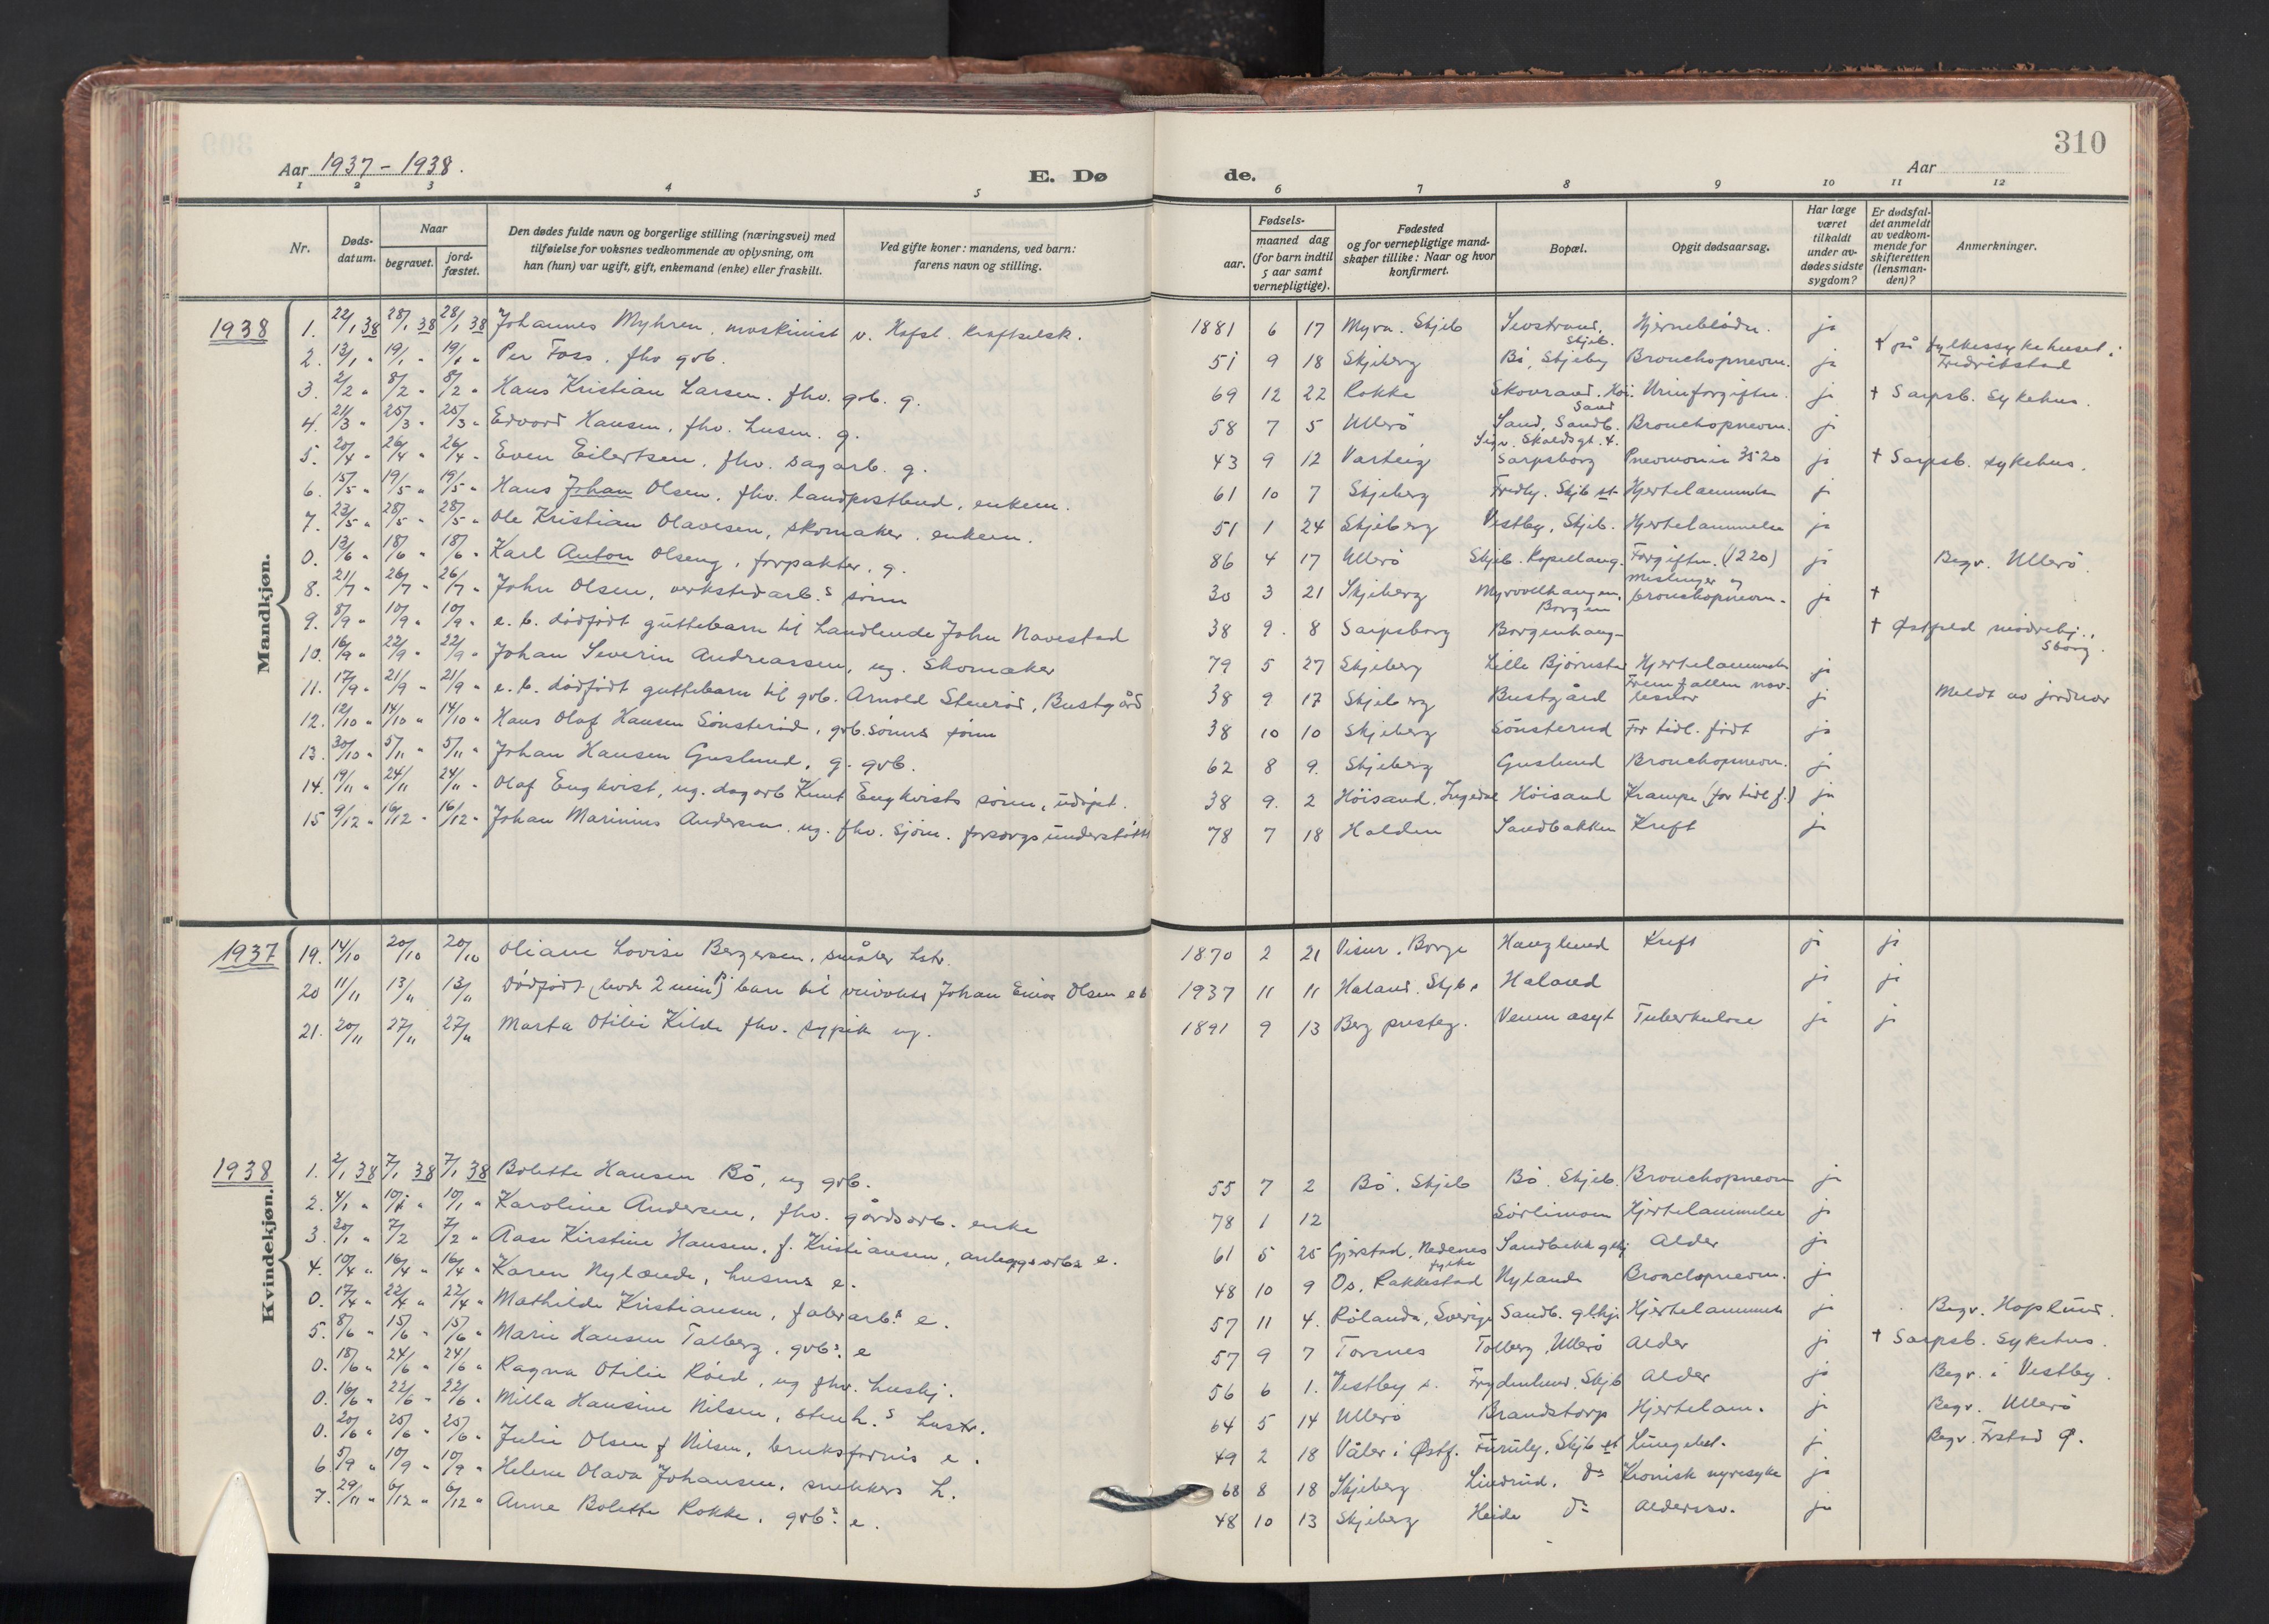 310
Aar 1937 - 1938.
E. Dø
de.
Aar
1 2 3 4 5 6 7 8 9 10 11 12
Nr.
Døds-datum.
Naar
begravet.
jord-fæstet.
Den dødes fulde navn og borgerlige stilling (næringsvei) med
tilføielse for voksnes vedkommende av oplysning, om
han (hun) var ugift, gift, enkemand (enke) eller fraskilt.
Ved gifte koner: mandens, ved barn:
farens navn og stilling.
Fødsels-
aar.
maaned dag
(for barn indtil
5 aar samt
vernepligtige).
Fødested
og for vernepligtige mand-
skaper tillike: Naar og hvor
konfirmert.
Bopæl.
Opgit dødsaarsag.
Har læge
været
tilkaldt
under av-
dødes sidste
sygdom?
Er dødsfal-
det anmeldt
av vedkom-
mende for
skifteretten
(lensman-
den)?
Anmerkninger.
Mandkjøn.
1938
1. 22/1 38 28/1 38 28/1 38 Johannes Myhren, maskinist v. Hafsl. Kraftselsk. 1881 6 17 Myra. Skjeb Skjeb. Hjerneblødn. ja
2. 13/1 " 19/1 " 19/1 " Per Foss. fhv gvb. 51 9 18 Skjeberg Bö, Skjeberg Bronchopneum. ja † på fylkessykehuset i Fredrikstad
3. 2/2 " 8/2 " 8/2 " Hans Kristian Larsen. fhv. gvb. g. 69 12 22 Rokke Urinforgiftn. ja † Sarpsb. Sykehus.
4. 21/3 " 25/3 " 25/3 " Edvard Hansen. fhv. husm. g. 58 7 5 Ullerö Sand, Sandb. Bronchopneum. ja
5. 20/4 " 26/4 " 26/4 " Even Eilertsen, fhv. sagarb. g. 43 9 12 Varteig Sigv. Skaldsgt. 4. Sarpsborg Pneumonia 3520 ja † Sarpsb. sykehus.
6. 15/5 " 19/5 " 19/5 " Hans Johan Olsen. fhv. landpostbud, enkem. 61 10 7 Skjeberg Fredly. Skjb st. Hjertelammelse ja
7. 23/5 " 28/5 " 28/5 " Ole Kristian Olavesen, skomaker. enkem. 51 1 24 Skjeberg Vestby, Skjeb. Hjertelammelse ja
0. 13/6 " 18/6 " 18/6 " Karl Anton Olseng, forpakter, g. 86 4 17 Ullerö Skjeb. Kapellang. Forgiftn. (1220) ja Begr. Ullerö.
8. 21/7 " 26/7 " 26/7 " John Olsen, verkstedarb.s sønn 30 3 21 Skjeberg Myrvollhaugen, Borgen Meslinger og bronchopneum. ja †
9. 8/9 " 10/9 " 10/9 " e. b. dødfødt guttebarn til Landhende John Navestad 38 9. 8 Sarpsborg Borgenhaug † Østfold mødrehj., Sborg.
10. 16/9 " 22/9 " 22/9 " Johan Severin Andreassen, ug. Skomaker 79 5 27 Skjeberg Lille Bjørnstad Hjertelammelse ja
11. 17/9 " 21/9 " 21/9 " e. b. dødfødt guttebarn til gvb. Arnold Stenerød, Bustgård 38 9 17 Skjeberg Bustgård Fremfallen nav-lesnor ja Meldt av jordmor
12. 12/10 " 14/10 " 14/10 " Hans Olaf Hansen Sønsteröd, gvb. sønns sønn 38 10 10 Skjeberg Sönsterud For tidl. født ja
13. 30/10 " 5/11 " 5/11 " Johan Hansen Guslund, g. gvb. 62 8 9. Skjeberg Guslund Bronchopneum. ja
14. 19/11 " 24/11 " 24/11 " Olaf Engkvist, ug. dagarb Knut Engkvists sønn, udöpt. 38 9. 2 Höisand. Ingedal Höisand Krampe (for tidl f.) ja
15 9/12 " 16/12 " 16/12 " Johan Marinius Andersen. ug. fhv. Sjöm. forsorgsunderstøtt 78 7 18 Halden Sandbakken Kreft ja
1937
19. 14/10 20/10 20/10 Oliane Lovise Bergersen, hstr. 1870 2 21 Visur. Borge Hauglund Kreft ja ja
20 11/11 13/11 13/11 Dødfødt (levde 2 min) barn til Johan Einar Olsen 1937 11 11 Haland. Skjb. Haland ja ja
21. 20/11 27/11 27/11 Marta Otilie Kilde fhv. sypike ug. 1891 9 13 Berg presteg. Veum asyl Tuberkulose ja ja
Kvindekjøn.
1938
1. 2/1 38 7/1 38 7/1 38 Bolette Hansen Bö, ug gvb. 55 7 2 Bö. Skjeb Bö. Skjeb. Bronchopneum ja
2. 4/1 " 10/1 " 10/1 " Karoline Andersen, fhv. gårdsarb. enke 78 1 12 Sörlimoen Hjertelammelse ja
3. 30/1 " 7/2 7/2 " Aase Kirstine Hansen. f. Kristiansen, anleggsarbs e. 61 5 25 Gjerstad, Nedenes fylke Sandbakk glhj Alder ja
4. 10/4 " 16/4 " 16/4 " Karen Nylænde, husms e. 48 10 9 Os, Rakkestad Nylande Bronchopneum. ja
0. 17/4 " 22/4 " 22/4 " Mathilde Kristiansen, fabrarb.s e. 57 11 4. Rölanda, Sverige Sandb. glhj. Hjertelammelse ja Begr. Haplund.
5. 8/6 " 15/6 " 15/6 " Marie Hansen Talberg, gvbs. e 57 9 7 Torsnes Talberg, Ullerö Alder ja † Sarpsb. Sykehus.
0. 18/6 " 24/6 " 24/6 " Ragna Otilie Röed, ug fhv. hushj. 56 6 1. Vestby Frydenlund. Skjb Alder ja Begr. i Vestby.
0. 16/6 " 22/6 " 22/6 " Milla Hansine Nilsen, stenh.s hustr. 64 5 14 Ullerö Brandstorp Hjertelam. ja Begr. Ullerö
0. 20/6 " 25/6 " 25/6 " Julie Olsen f Nilsen, bruksformis e. 49 2 18 Våler i Østf. Furuly, Skjb st Lungebet. j Begr. Frstad Ø.
6 5/9 " 10/9 " 10/9 " Helene Olava Johansen, snekkers h. 68 8 18 Skjeberg Lindrud, do Kronisk nyresyke ja
7. 29/11 " 6/12 " 6/12 " Anne Bolette Rokke, gvbs. e. 48 10 13 Skjeberg Heide do Alderssv. ja